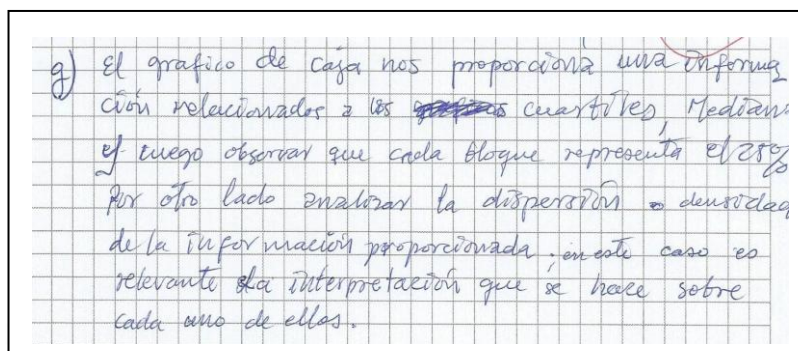 g) El grafico de caja nos proporciona una informa
ción relacionados a los cuartiles, Median
y luego observar que cada bloque representa el 25%
Por otro lado analizar la dispersión o densidad
de la información proporcionada. en este caso es
relevante la interpretación que se hace sobre
cada uno de ellos.